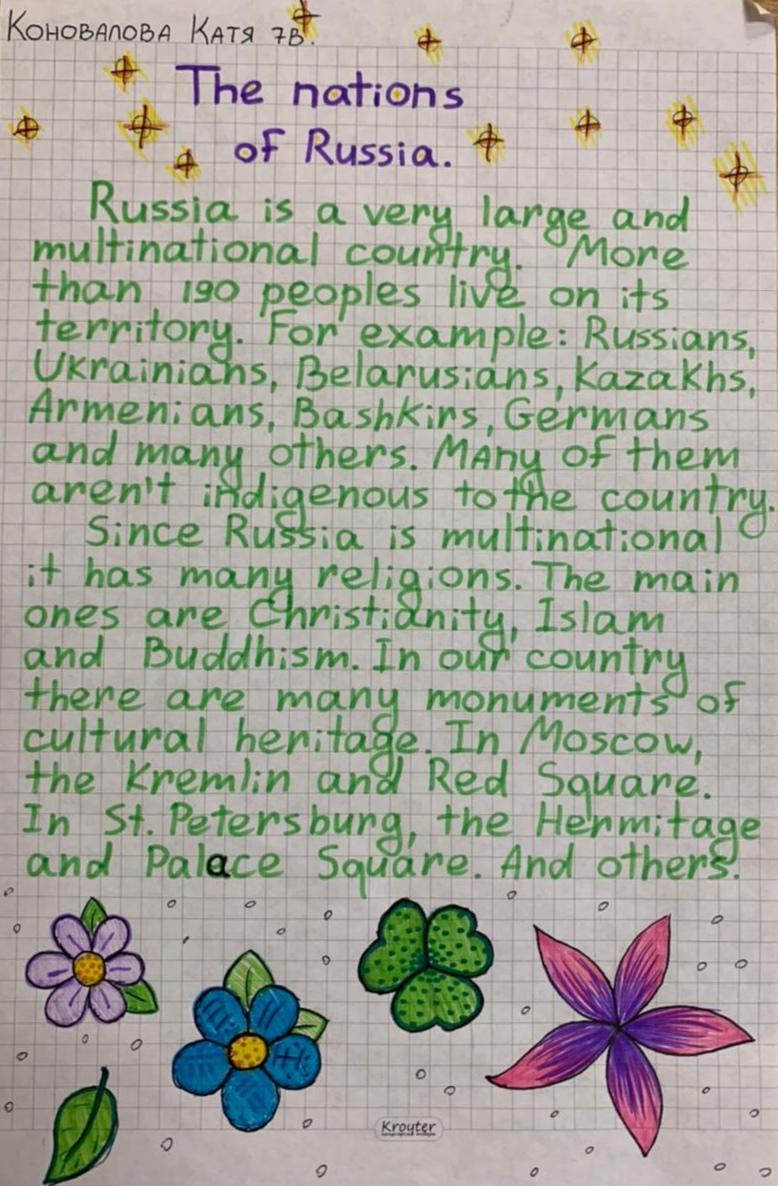 Коновалова Катя 7В.
The nations
of Russia.
Russia is a very large and
multinational country. More
than 190 peoples live on its
territory. For example: Russians,
Ukrainians, Belarusians, Kazakhs,
Armenians, Bashkirs, Germans
and many others. Many of them
aren't indigenous to the country.
Since Russia is multinational
it has many religions. The main
ones are Christianity, Islam
and Buddhism. In our country
there are many monuments of
cultural heritage. In Moscow,
the Kremlin and Red Square.
In St. Petersburg, the Hermitage
and Palace Square. And others.
Kroyter